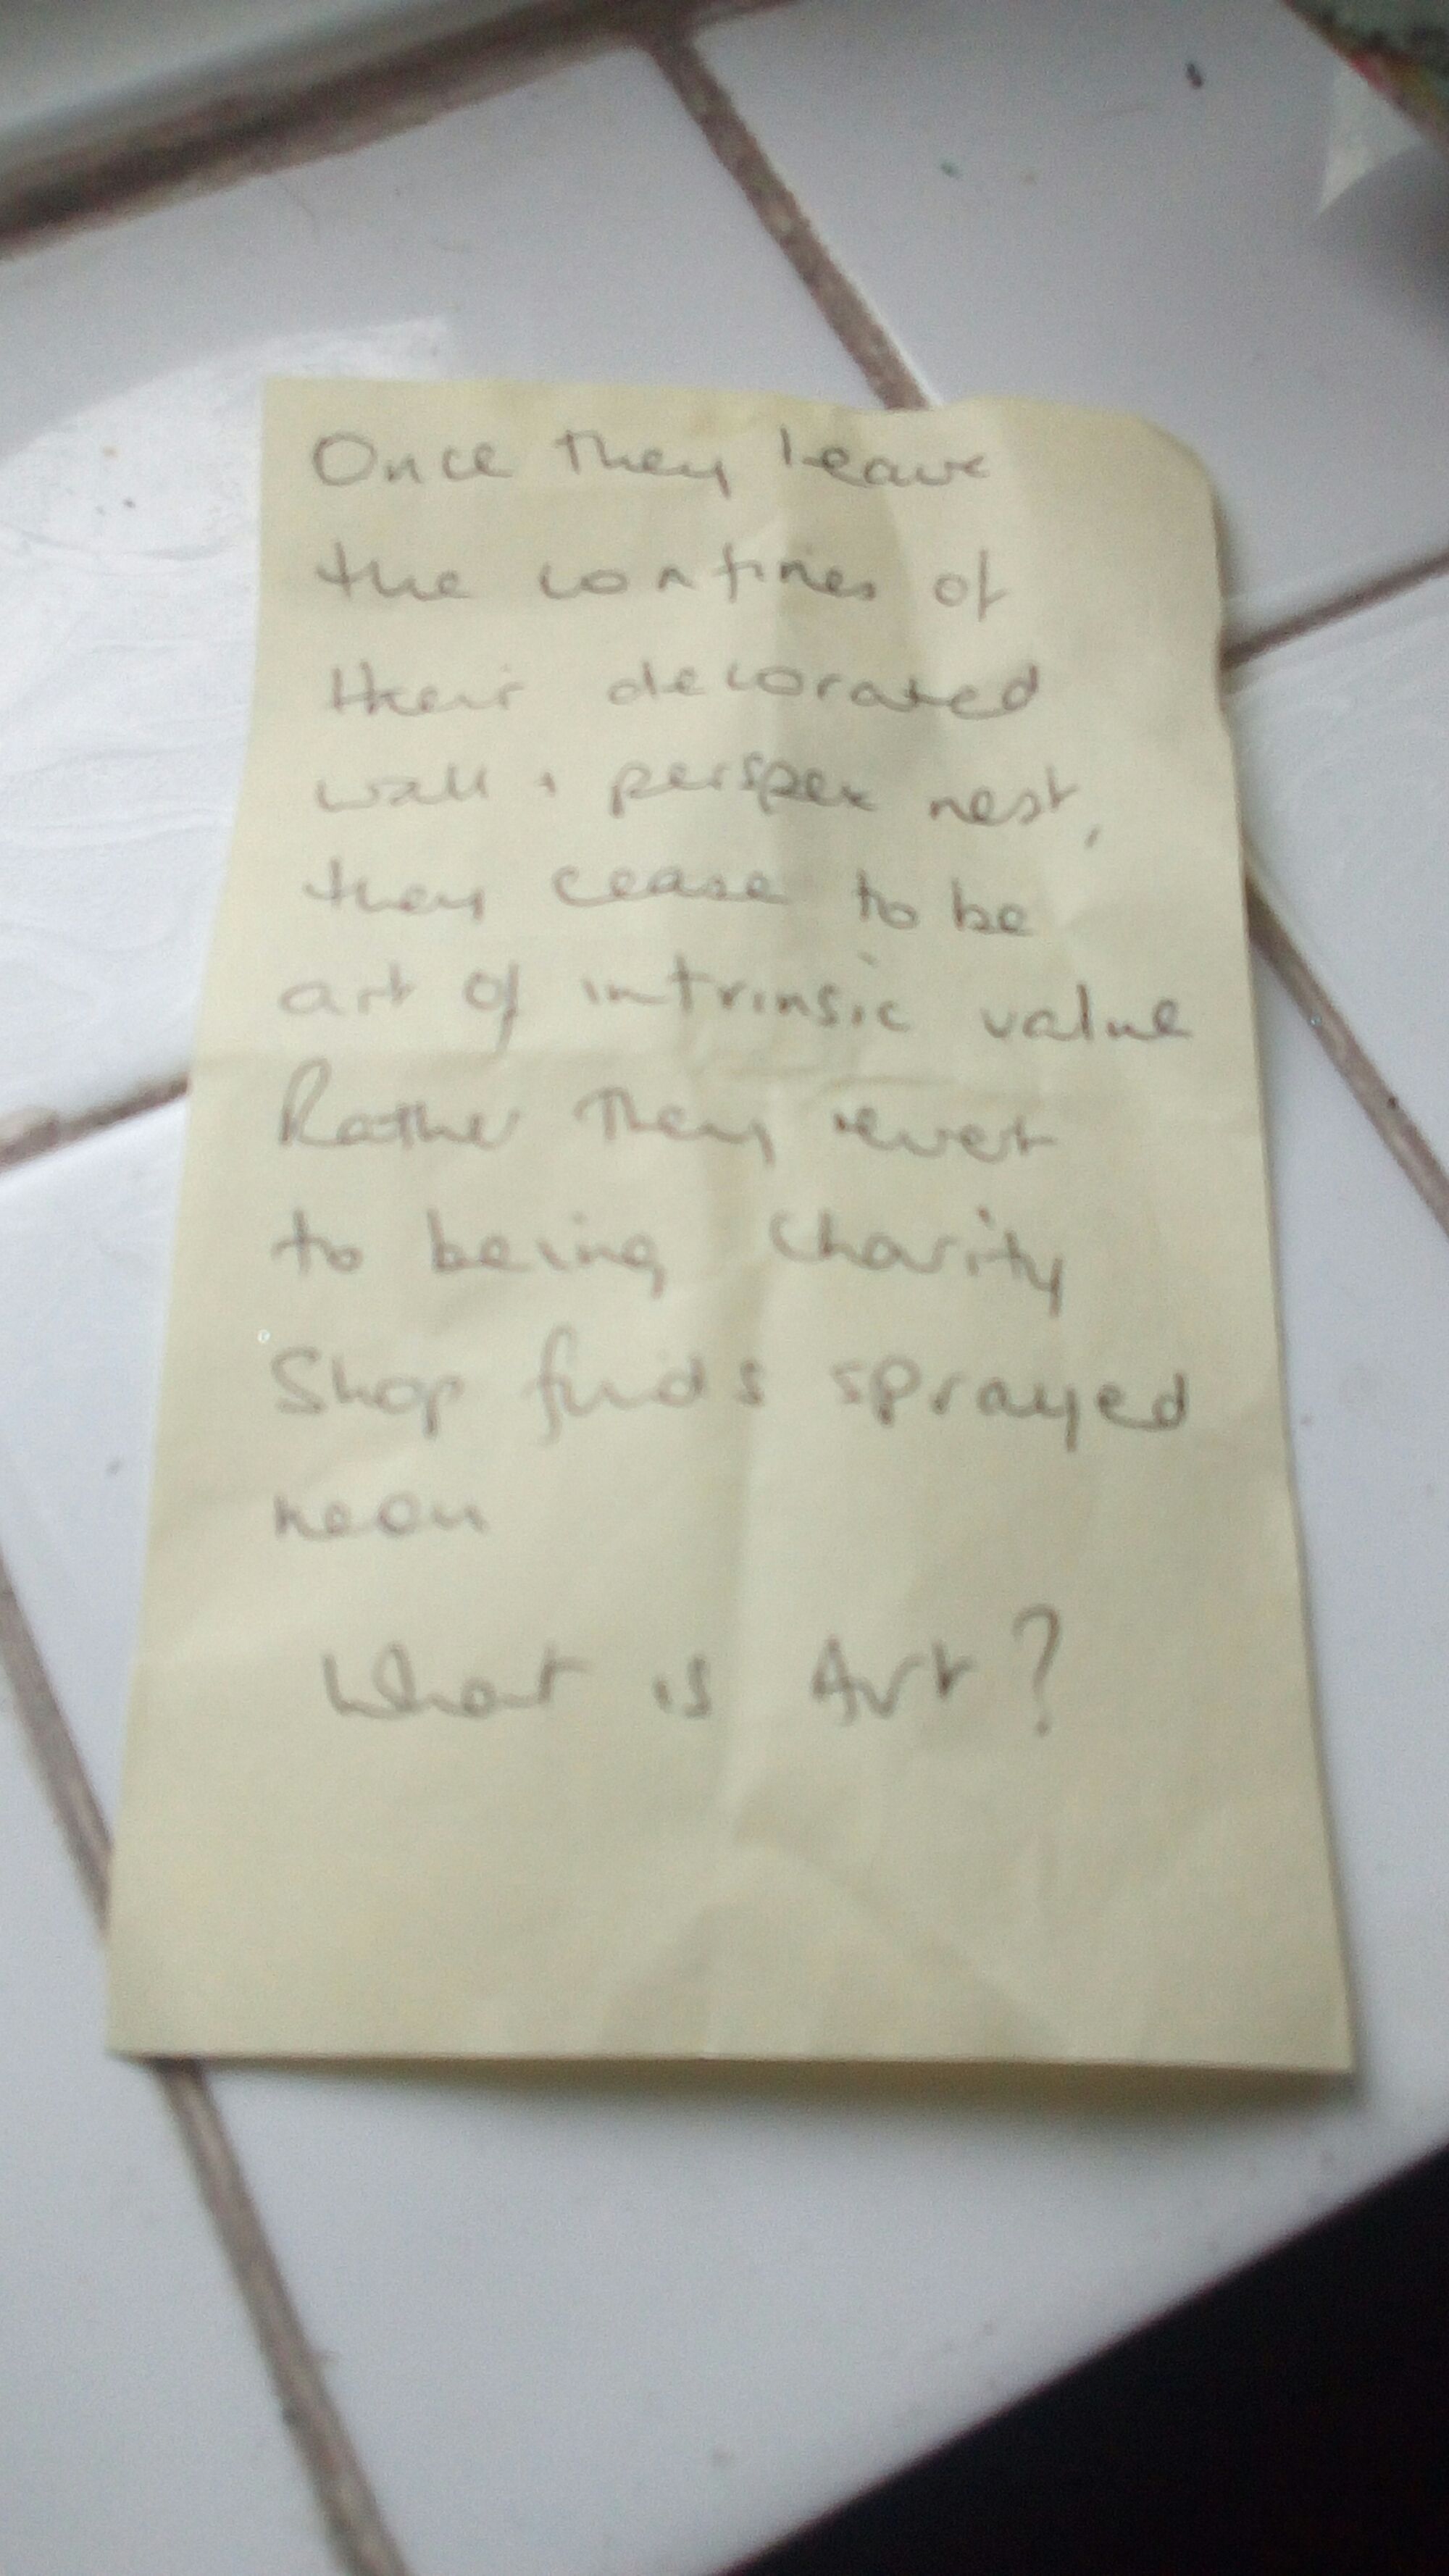 Once they leave
the confines of
their decorated
wall + perspex nest,
they cease to be
art of intrinsic value
Rather they revert
to being charity
Shop finds sprayed
neon
What is Art?